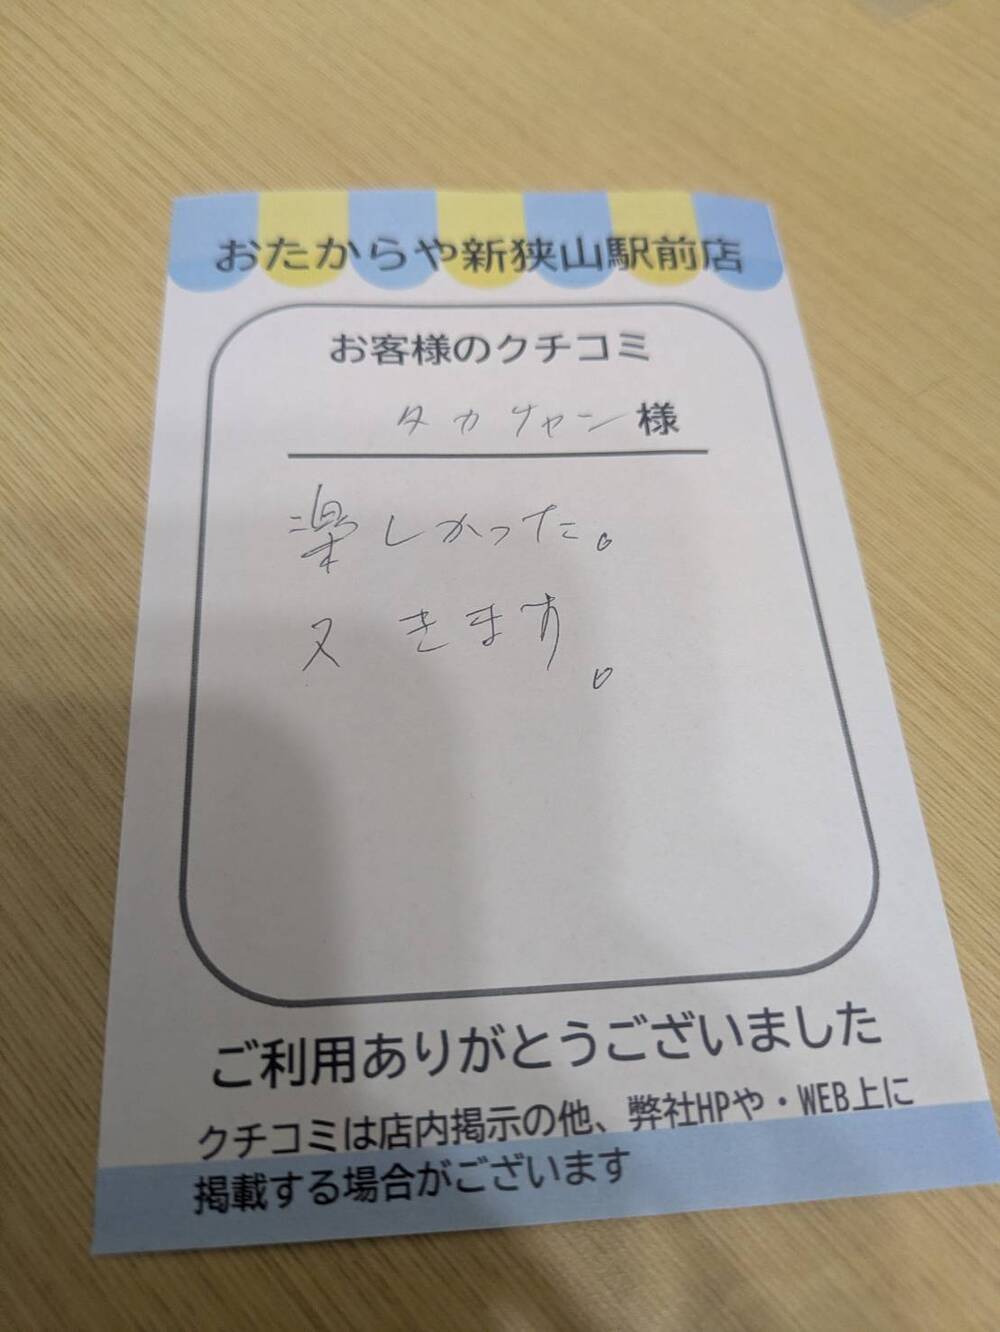 おたからや新狭山駅前店
お客様のクチコミ
タカチャン様
楽しかった。
又きます。
ご利用ありがとうございました
クチコミは店内掲示の他、弊社HPや・WEB上に
掲載する場合がございます